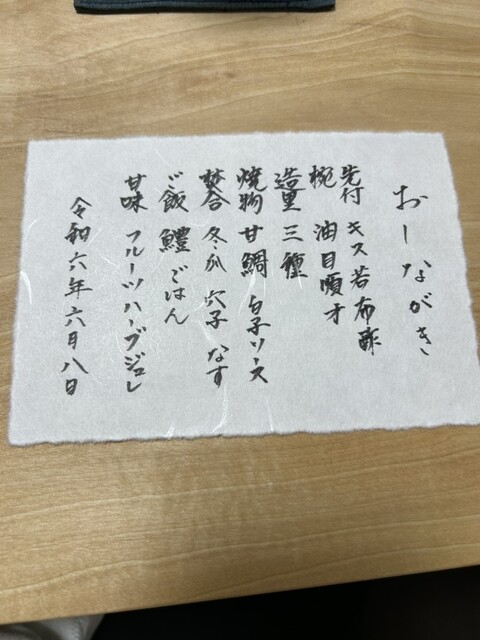 おしながき
先付 キス若布酢
椀 油目順才
造里 三種
焼物 甘鯛 白子ソース
焚合 冬瓜 穴子 なす
ご飯 鱧ごはん
甘味 フルーツハーブジュレ
令和六年六月八日